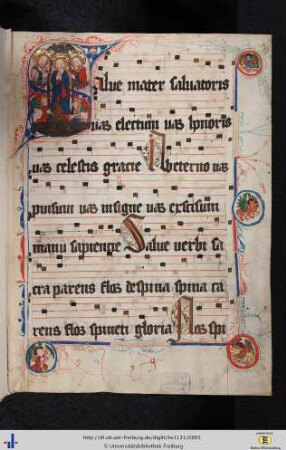 Salve mater salvatoris
vas electum vas honoris
vas celestis gracie Ab eterno vas
provisum vas insigne vas excisum
manu sapiencie Salve verbi sa
cra parens flos de spina spina ca
rens flos spineti gloria Nos spi
http://dl.ub.uni-freiburg.de/diglit/hs1131/0005
© Universitätsbibliothek Freiburg